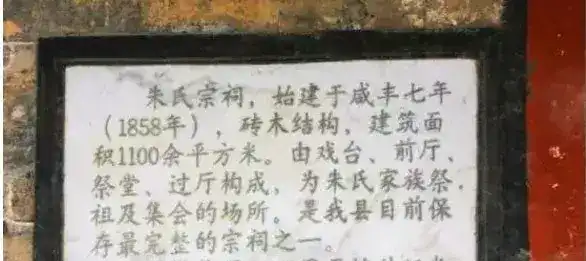 朱氏宗祠，始建于咸丰七年
（1858年），砖木结构，建筑面
积1100余平方米。由戏台、前厅、
祭堂、过厅构成，为朱氏家族祭
祖及集会的场所。是我县目前保
存最完整的宗祠之一。